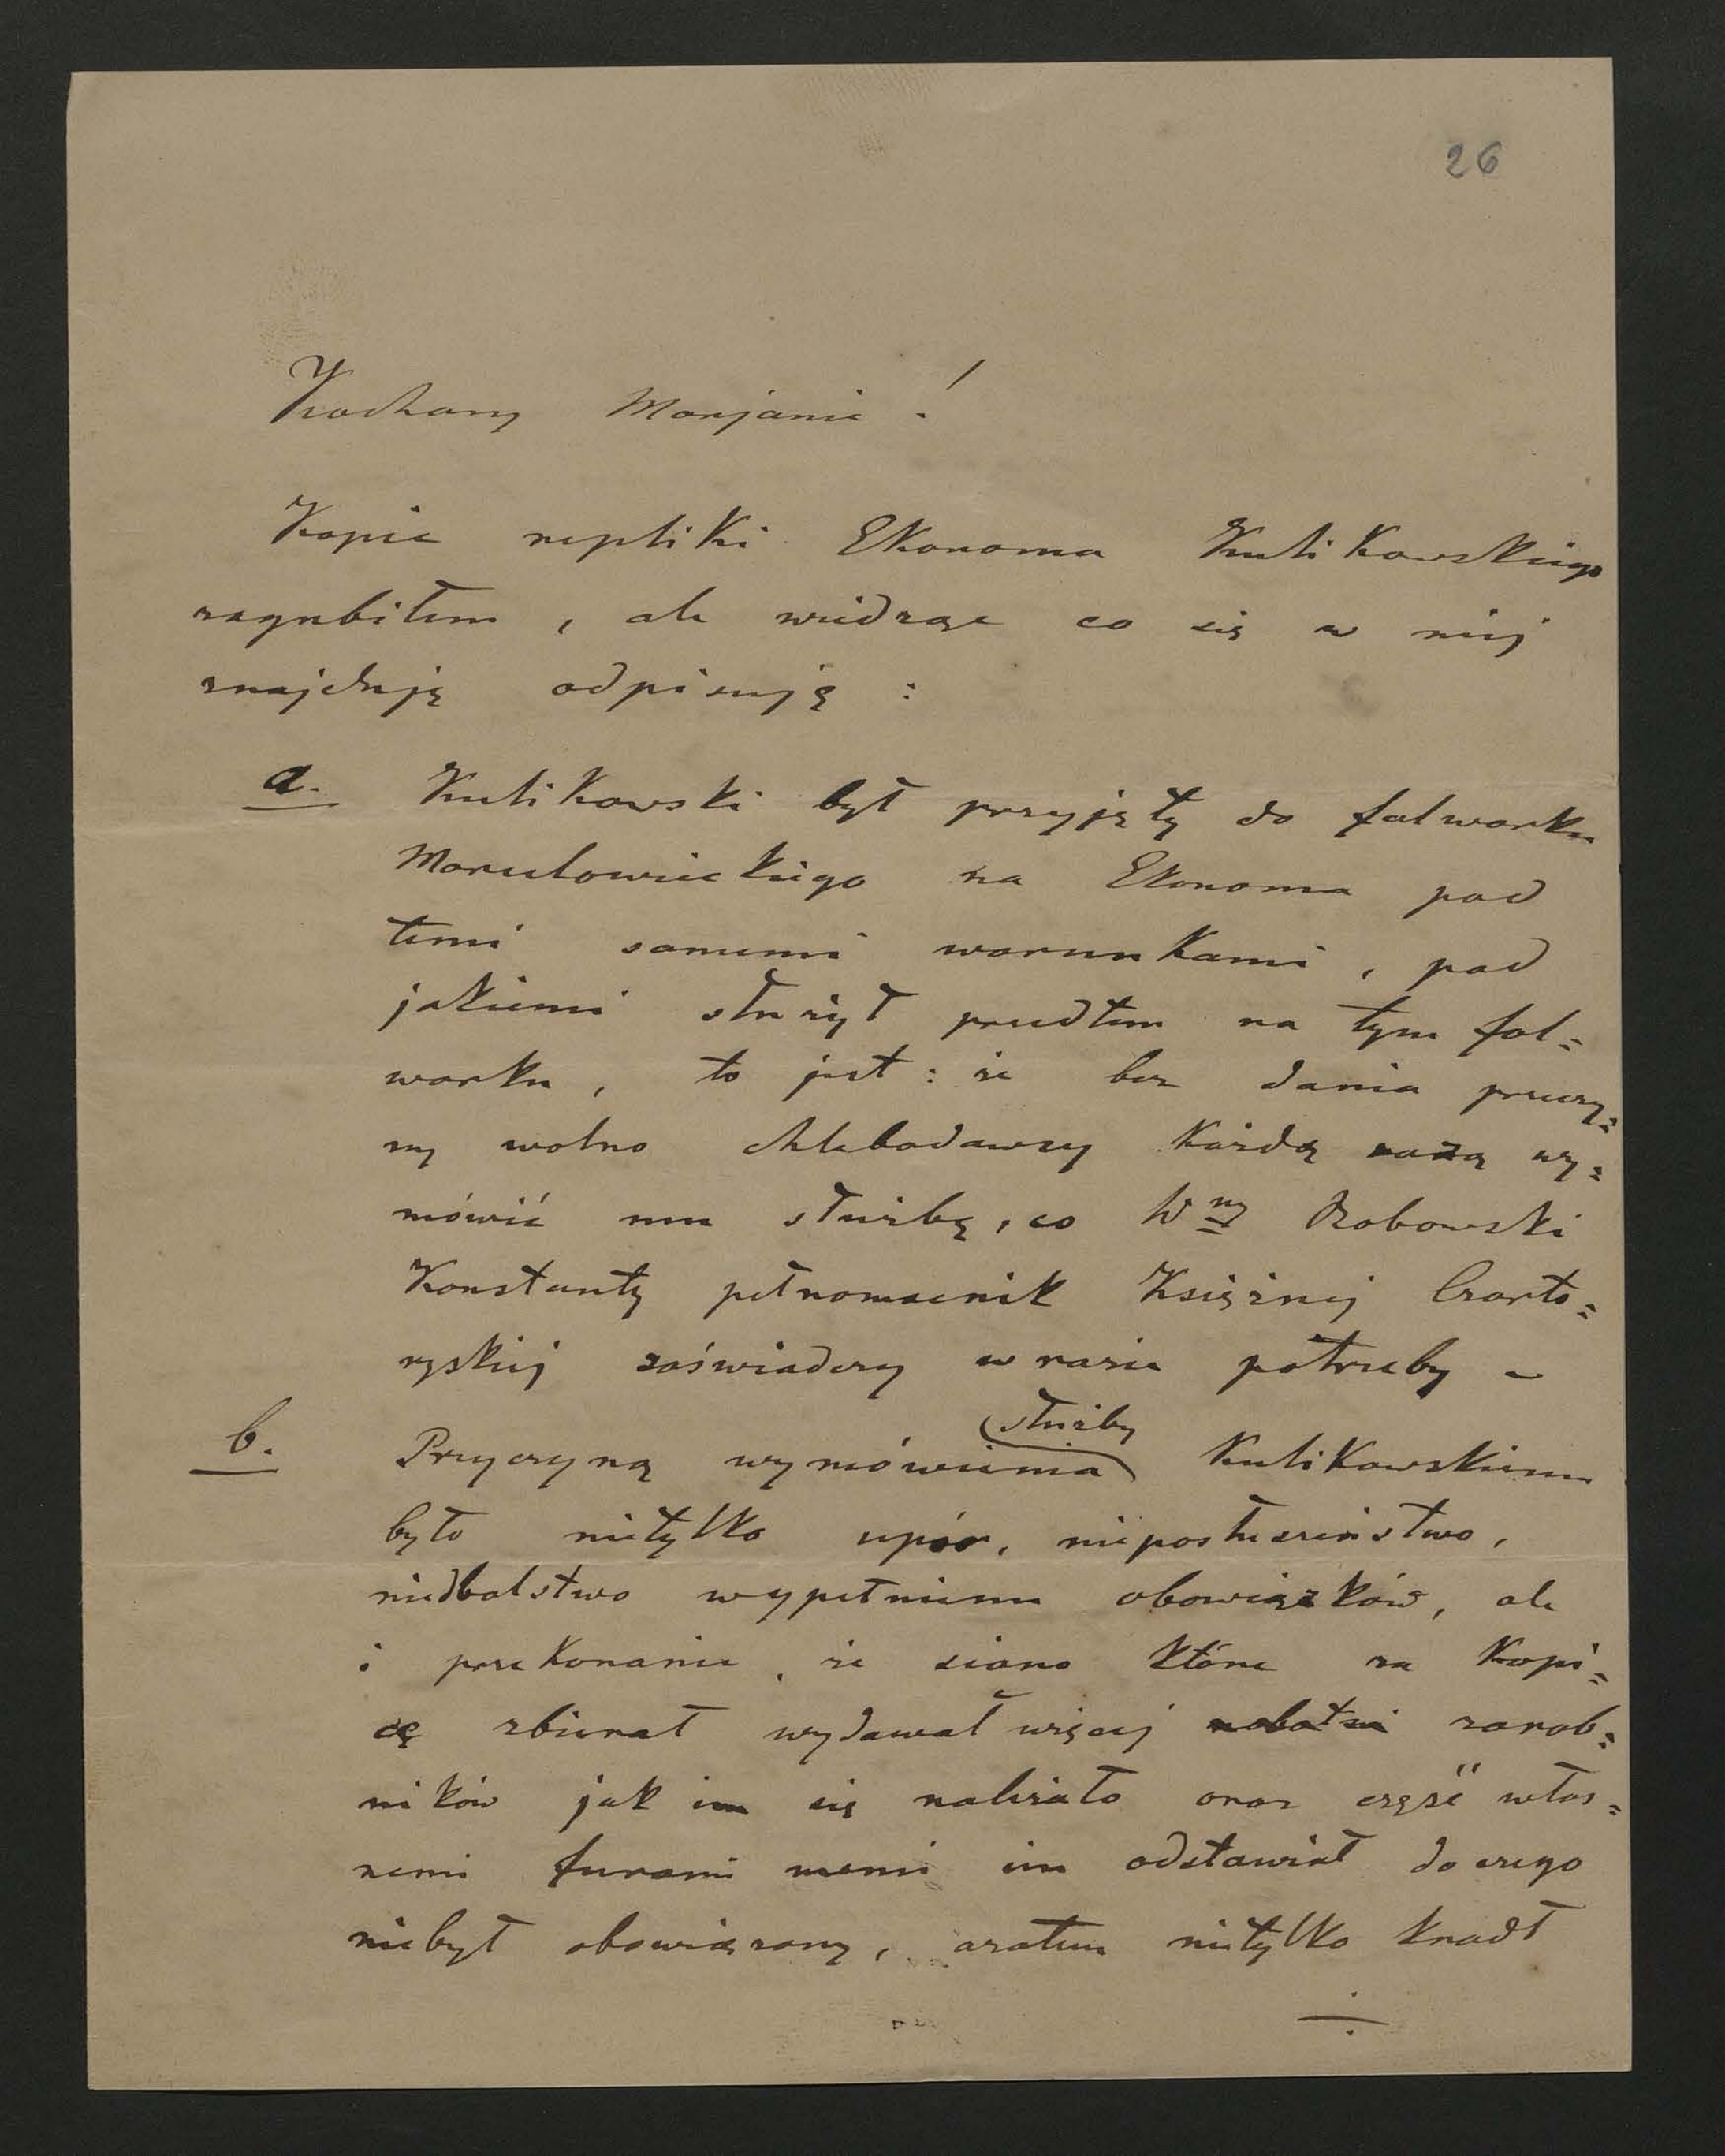 26
Kochany Marjanie!
Kopie repliki Ekonoma Kulikowskiego
zagubiłem, ale widząc co się w niej
znajduje odpisuję:
a. Kulikowski był przyjęty do falwarku
na Ekonoma pod
temi samemi warunkami, pod
jakiemi służył przedtem na tym fal=
warku, to jest: że bez dania przyczy=
ny wolno chlebodawcy każdą razą wy=
mówić mu służbę, co Wny Bobowski
Konstanty pełnomocnik Księżnej Czarto=
ryskiej zaświadczy w razie potrzeby –
b. Przyczyną wymówienia służby Kulikowskiemu
było nietylko upór, nieposłuszeństwo,
niedbalstwo wypełnieniu obowiązków, ale
i przekonanie, że siano które za kopi=
cę zbierał wydawał więcej zarob=
ników jak im się należało oraz część włas=
nemi furami im odstawiał do czego
niebył obowiązany, azatem nietylko kradł
÷